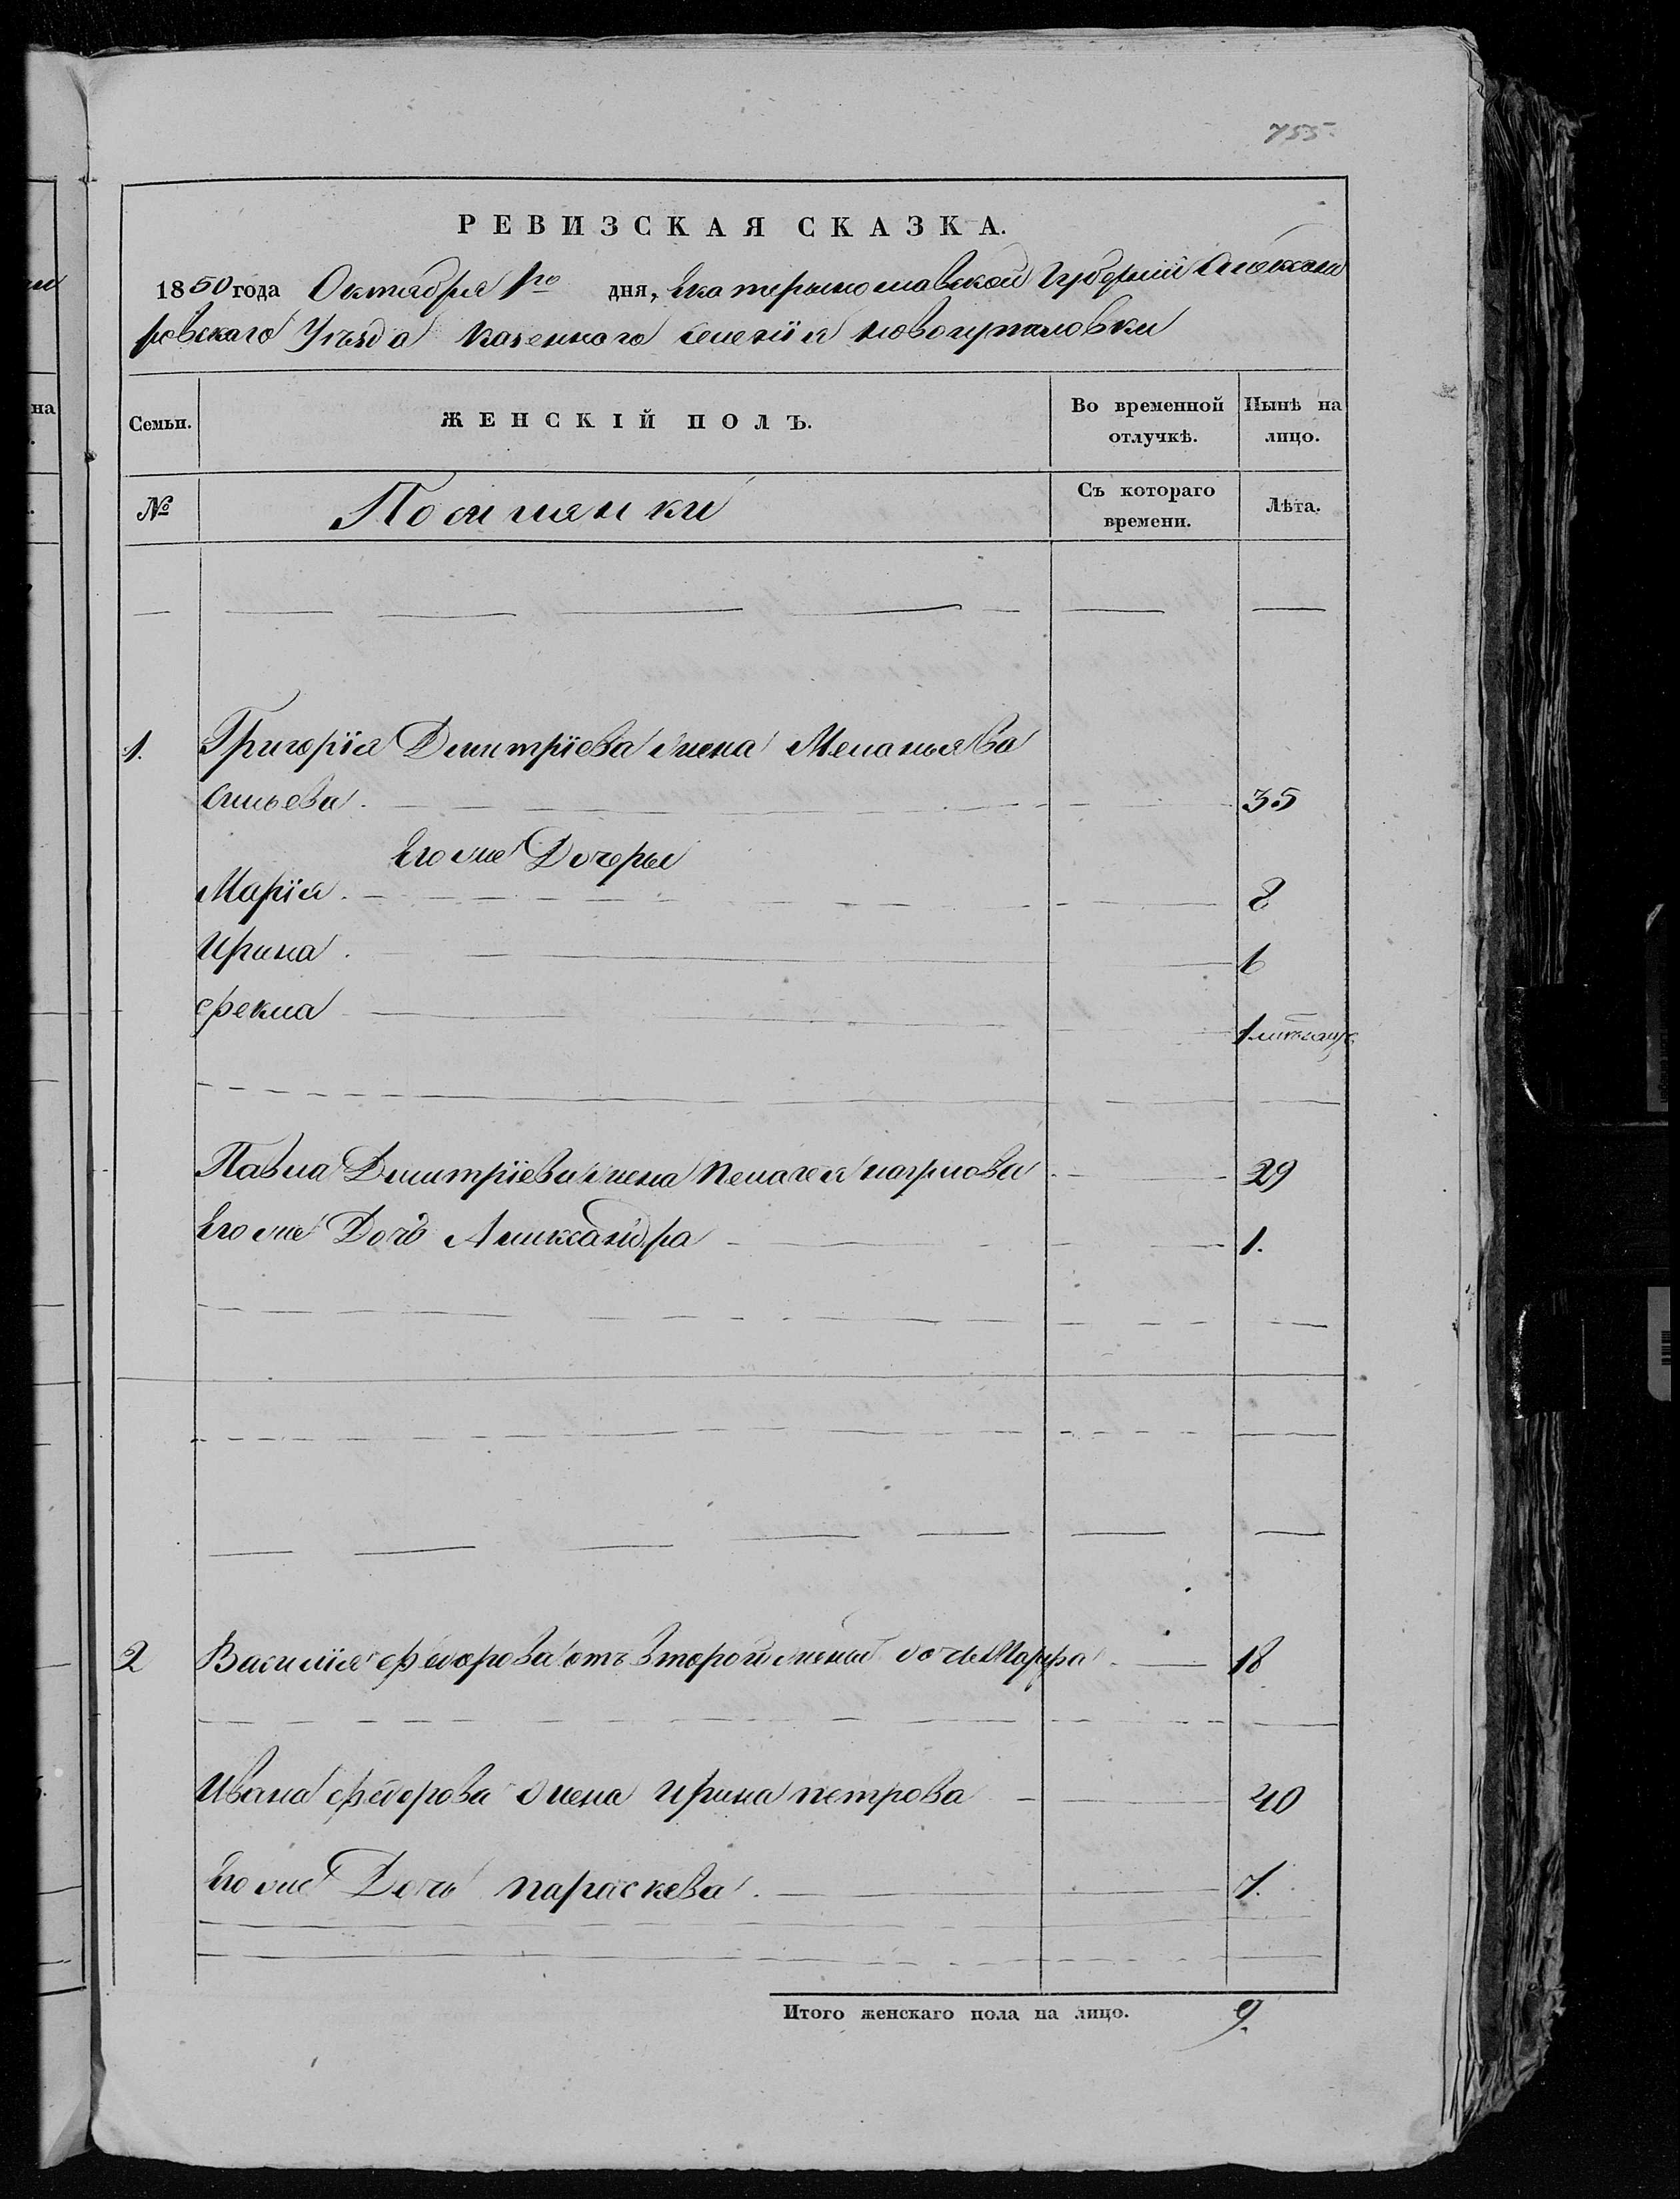 755
РЕВИЗСКАЯ СКАЗКА.
1850 года Октября 1го дня, Екатерынославской Губернии Александ
ровского Уезда Казенного селенія Новогупаловки
на
Семьи.
ЖЕНСКІЙ ПОЛЪ.
Во временной отлучкѣ.
Нынѣ на лицо.
№
Посилянки
Съ котораго времени.
Лѣта.
1. Григорія Дмитріева жена Меланья Ва
сильева. 35
Его же Дочеры
Марія. 8
Ирина. 6
Фекла 1 месяца
Павла Дмитріева жена Пелагея Карпова 29
Его же Дочь Аликсандра 1.
2 Василія Федорова отъ второй жены дочь Марфа 18
Ивана Федорова жена Ирина Петрова 40
Его же Дочь Параскева. 7.
Итого женскаго пола на лицо. 9.